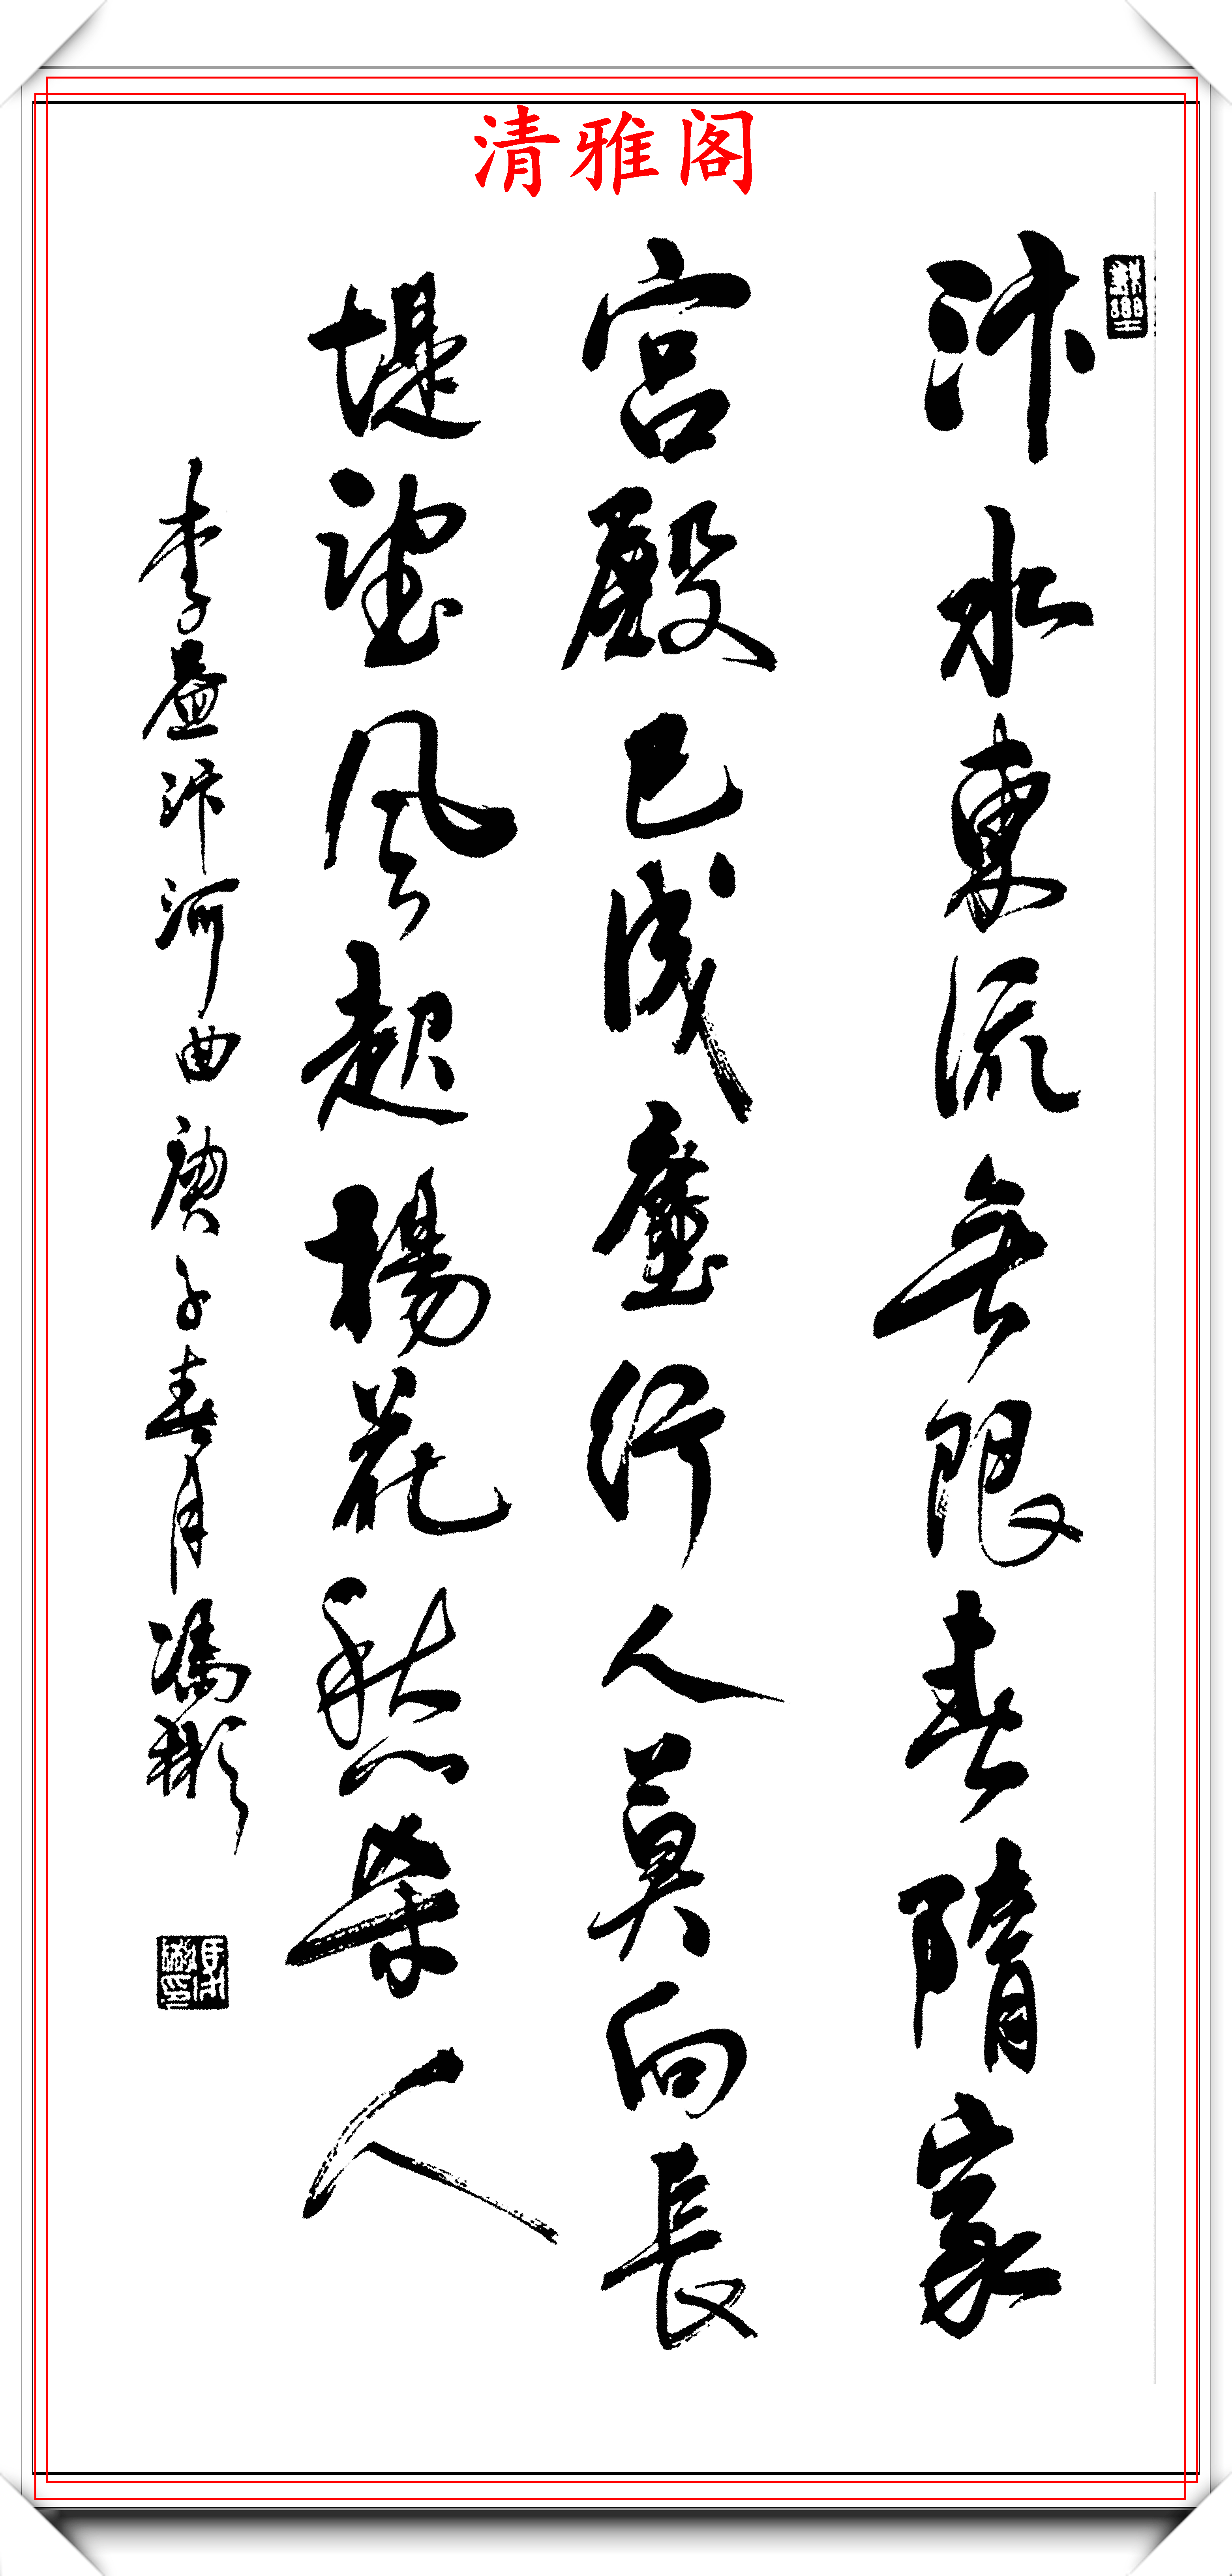 清雅阁
汴水東流无限春隋家
宫殿已成塵行人莫向長
堤望风起楊花愁杀人
李益汴河曲庚子春月冯彬